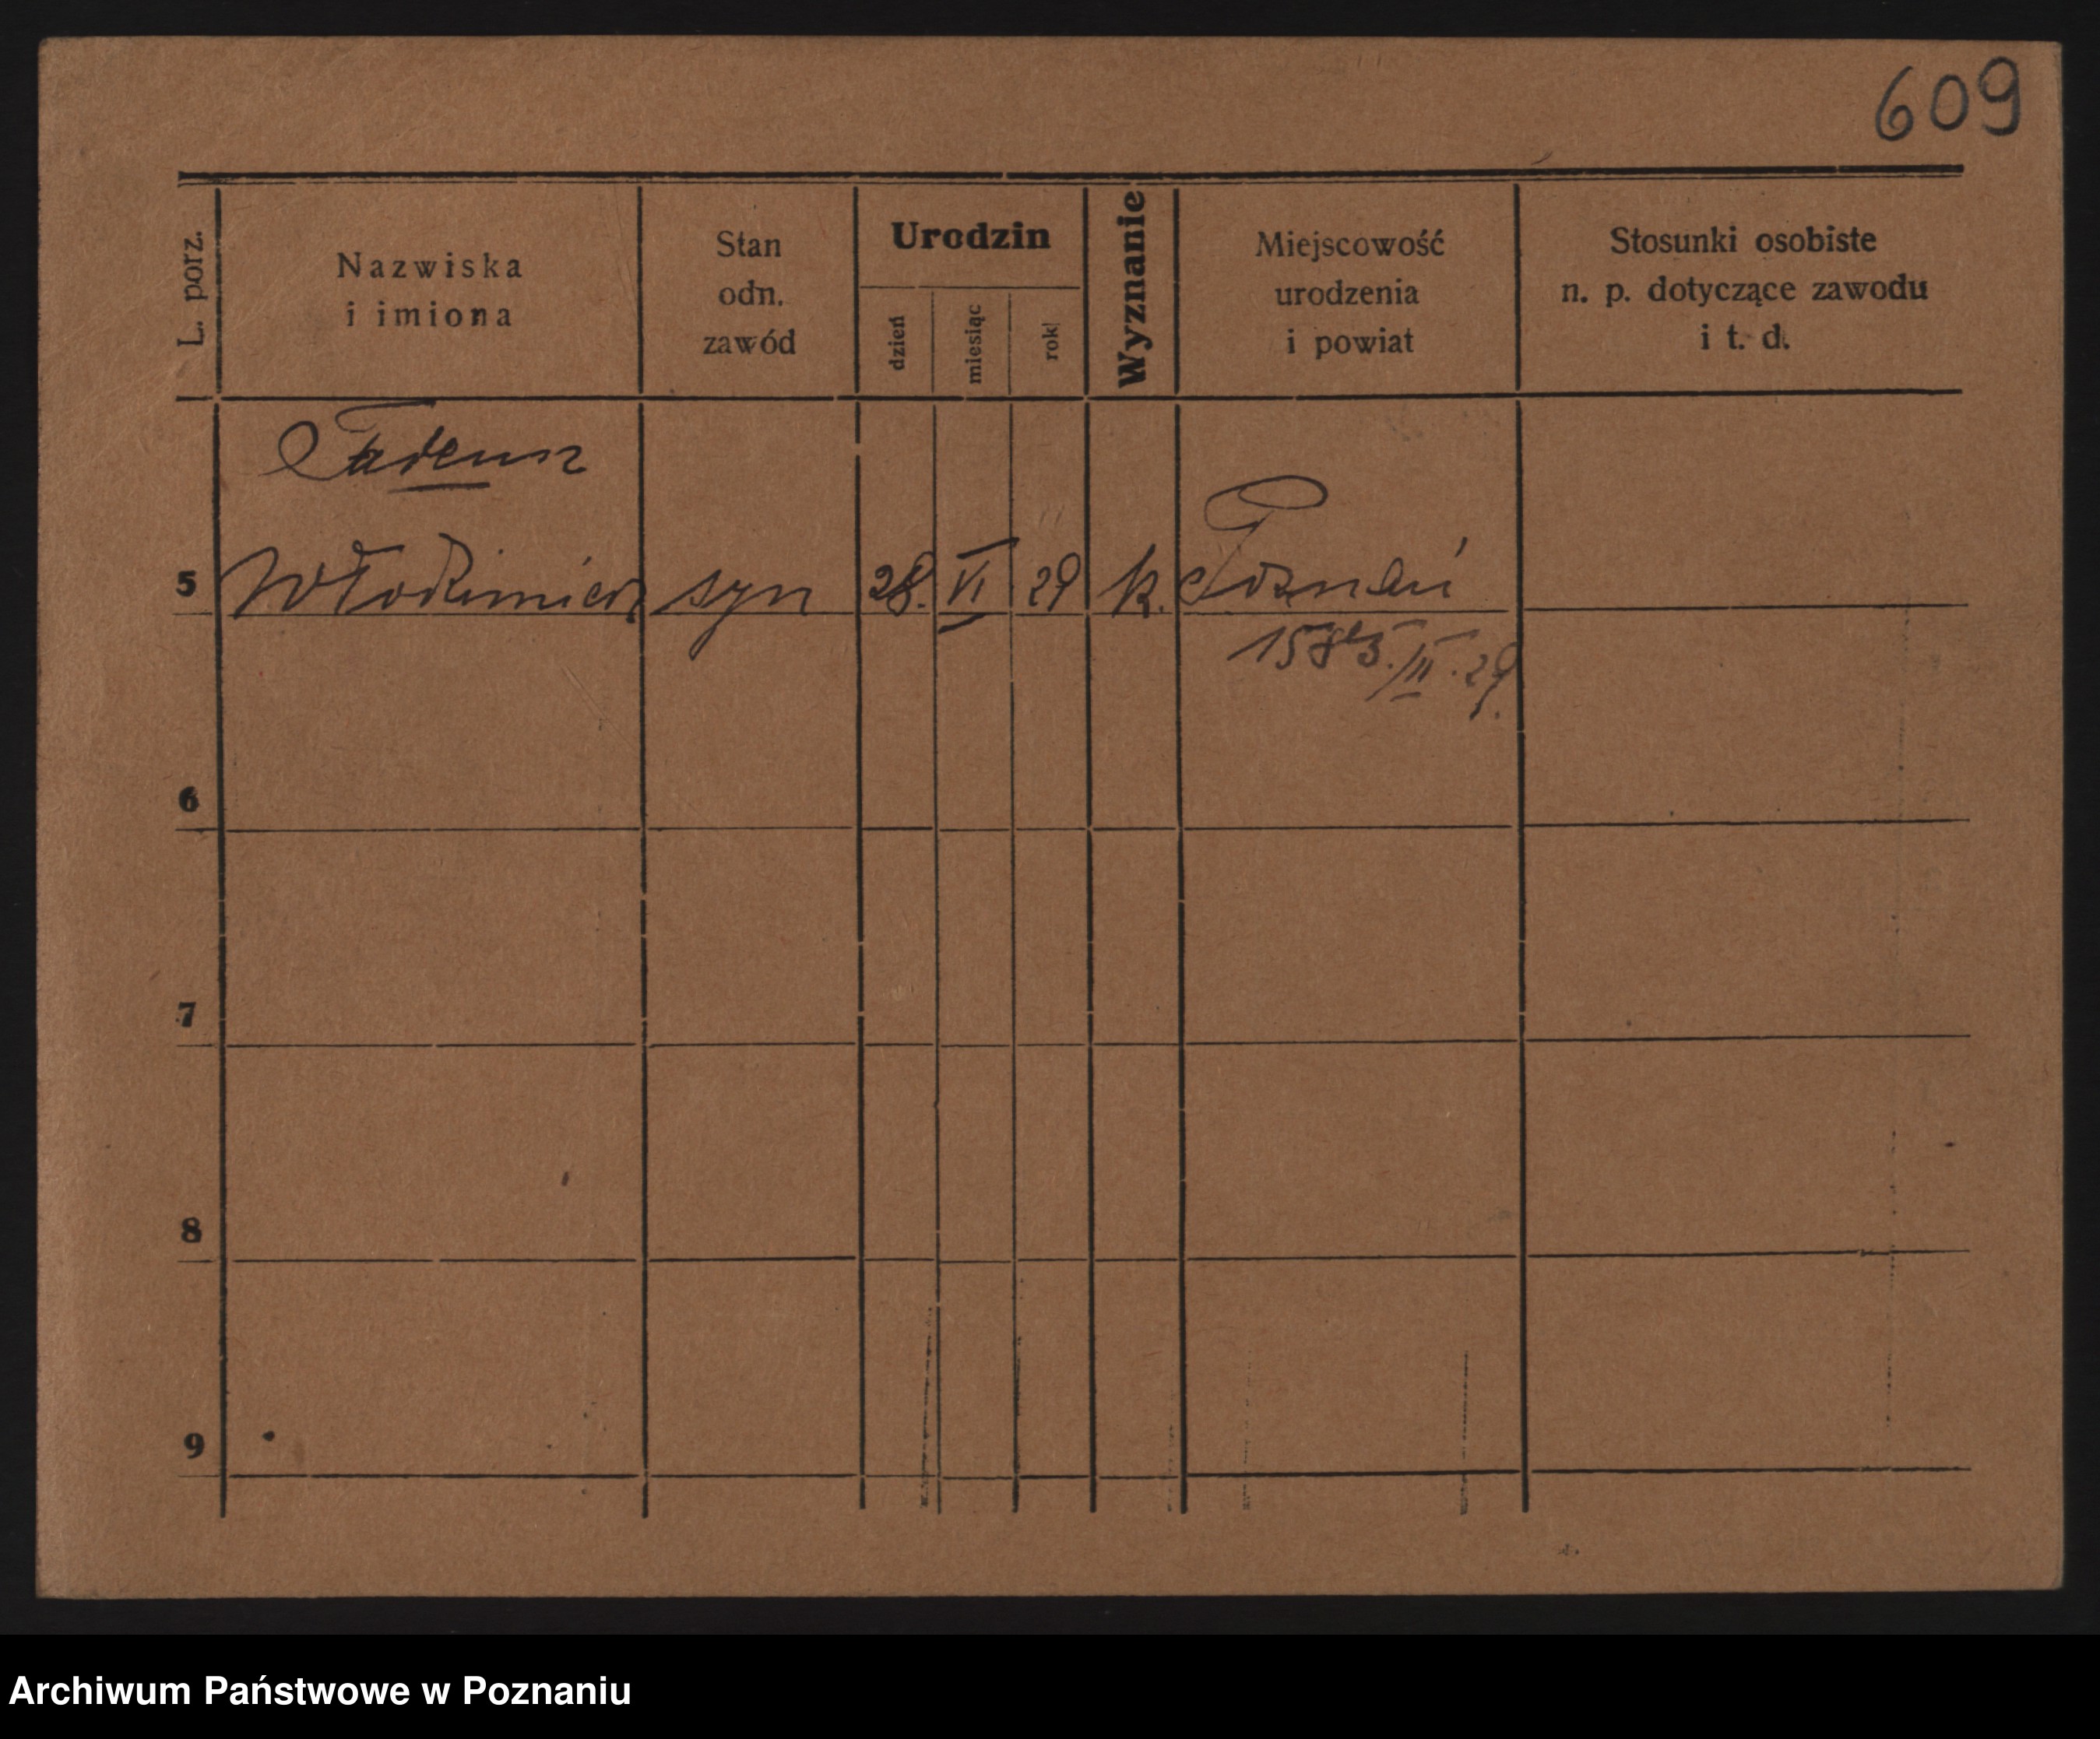 609
L. porz.
Nazwiska
i imiona
Stan
odn.
zawód
Urodzin
dzień
miesiąc
rok
Wyznanie
Miejscowość
urodzenia
i powiat
Stosunki osobiste
n. p. dotyczące zawodu
i t. d.
Tadeusz
5 Włodzimierz syn 28. VI 29 k. Poznań
/III. 29.
6
7
8
9
Archiwum Państwowe w Poznaniu